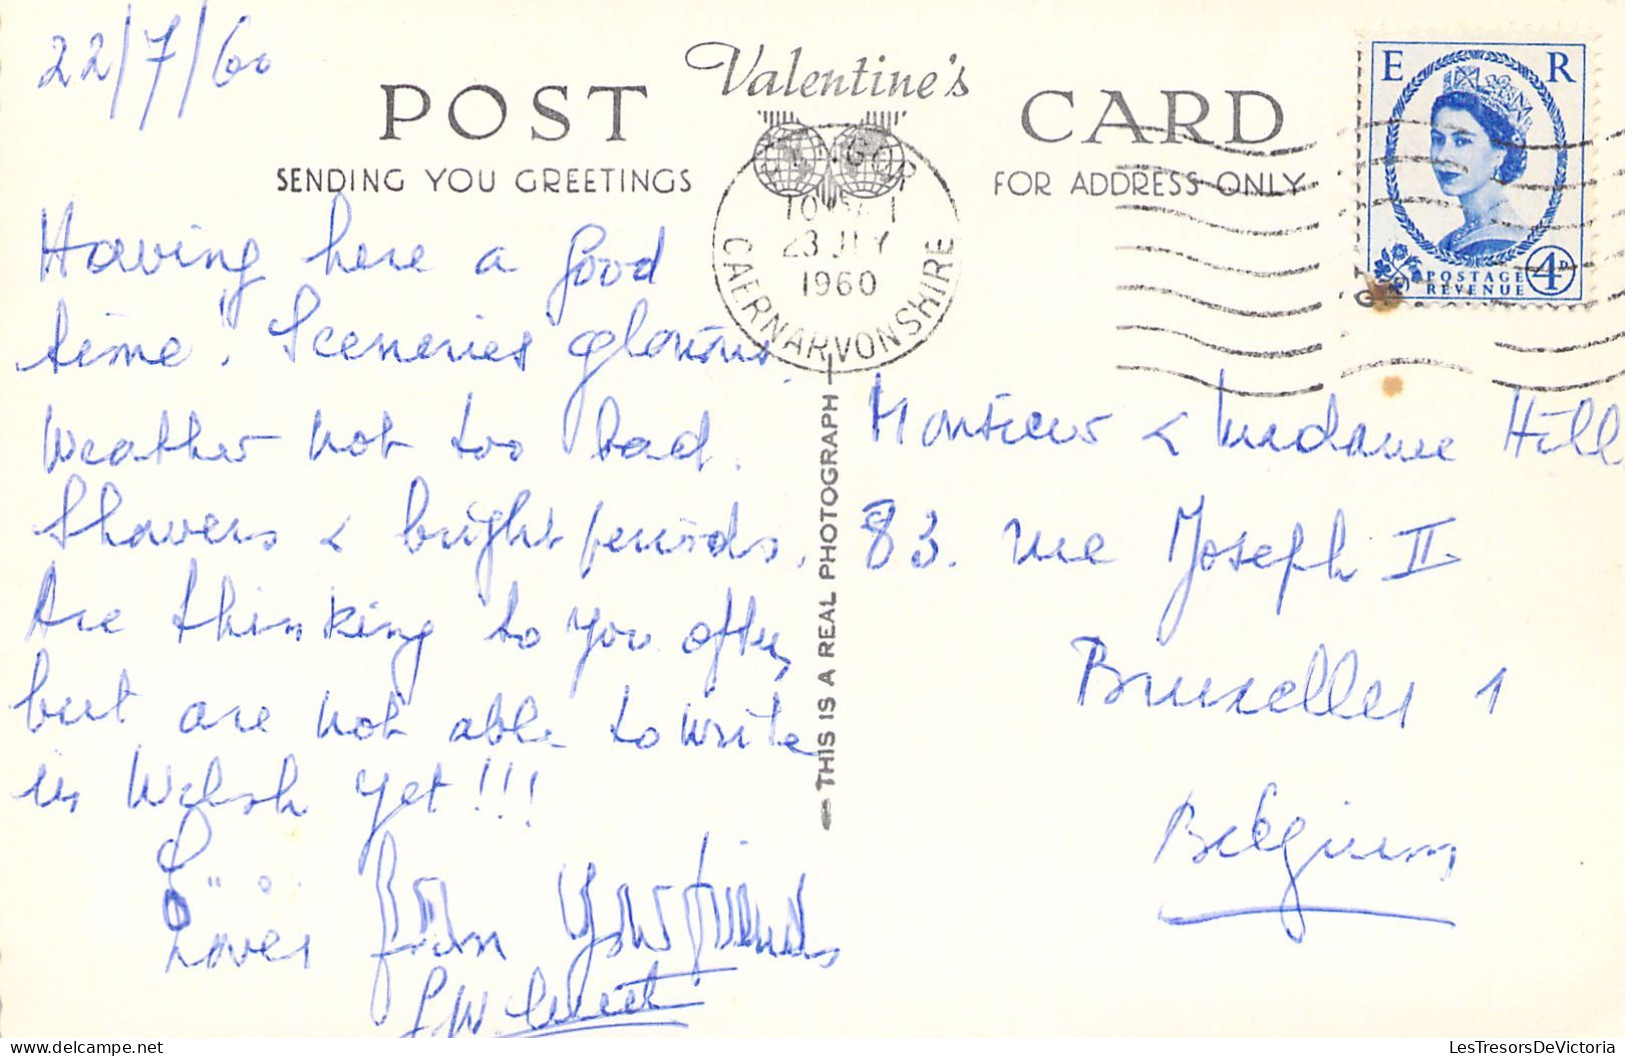 22/7/60
POST CARD
Valentine's
SENDING YOU GREETINGS
FOR ADDRESS ONLY
E R
POSTAGE
REVENUE
4D
23 JLY
1960
CAERNARVONSHIRE
Having here a good
time! Sceneries glorious.
Weather not too bad.
Showers & bright periods.
Are thinking to you often,
but are not able to write
in Welsh yet!!!
Loves from your friends
THIS IS A REAL PHOTOGRAPH
Monsieur & Madame Hill
83. rue Joseph II
Bruxelles 1
Belgium
LesTresorsDeVictoria